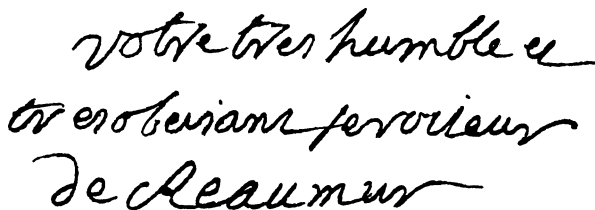 votre tres humble et
tres obeisant serviteur
de Reaumur